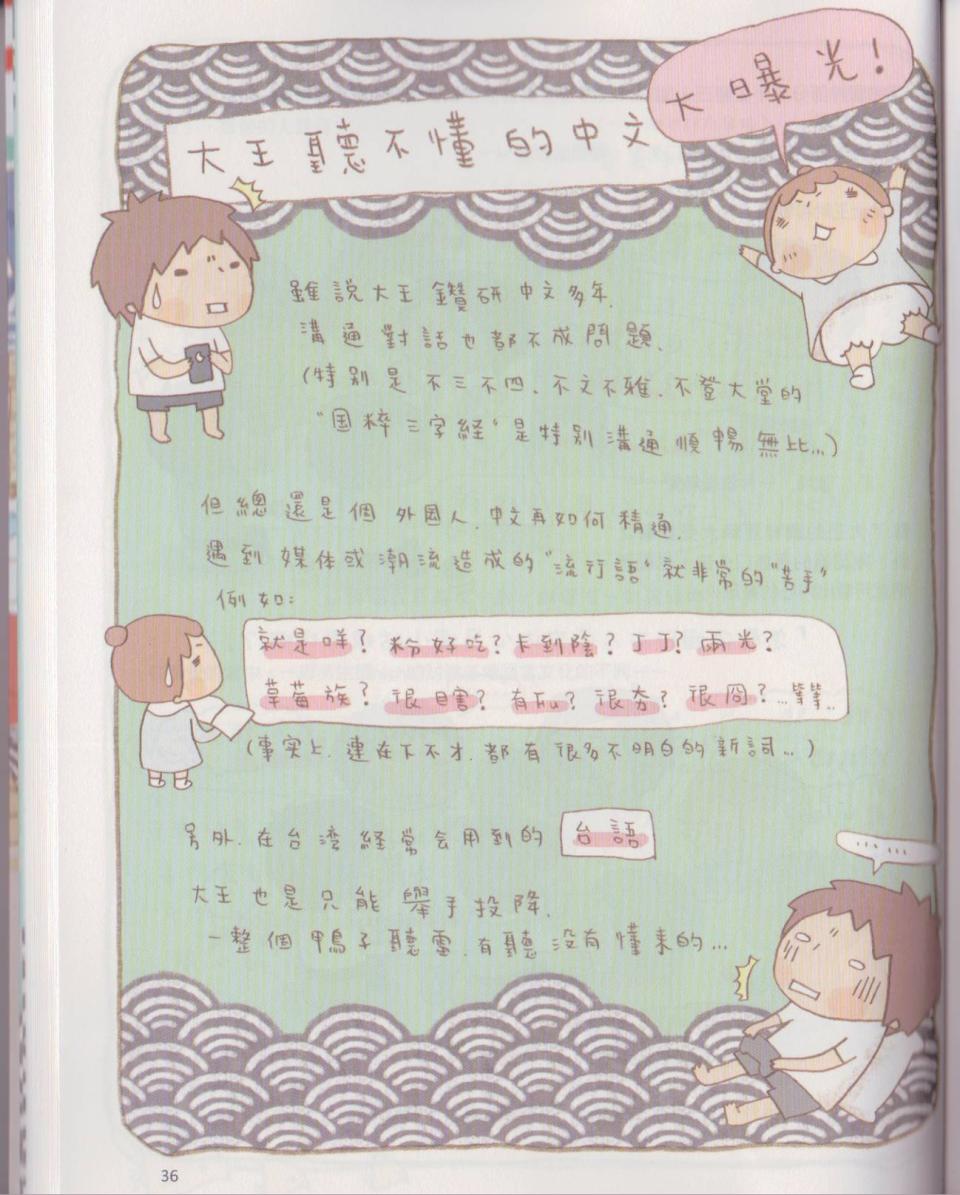 大曝光!
大王聽不懂的中文
雖說大王鑽研中文多年、
溝通對話也都不成問題、
(特別是不三不四、不文不雅、不登大堂的
"国粹三字経"是特別溝通順暢無比...)
但總還是個外國人、中文再如何精通、
遇到媒体或潮流造成的"流行語"就非常的"苦手"
例如:
就是咩?粉好吃?卡到陰?丁丁?兩光?
草莓族?很目害?有Fu?很夯?很冏?...等等..
(事実上、連在下不才、都有很多不明白的新詞...)
另外、在台湾経常会用到的台語
大王也是只能舉手投降、
一整個鴨子聽雷、有聽沒有懂來的...
......
36